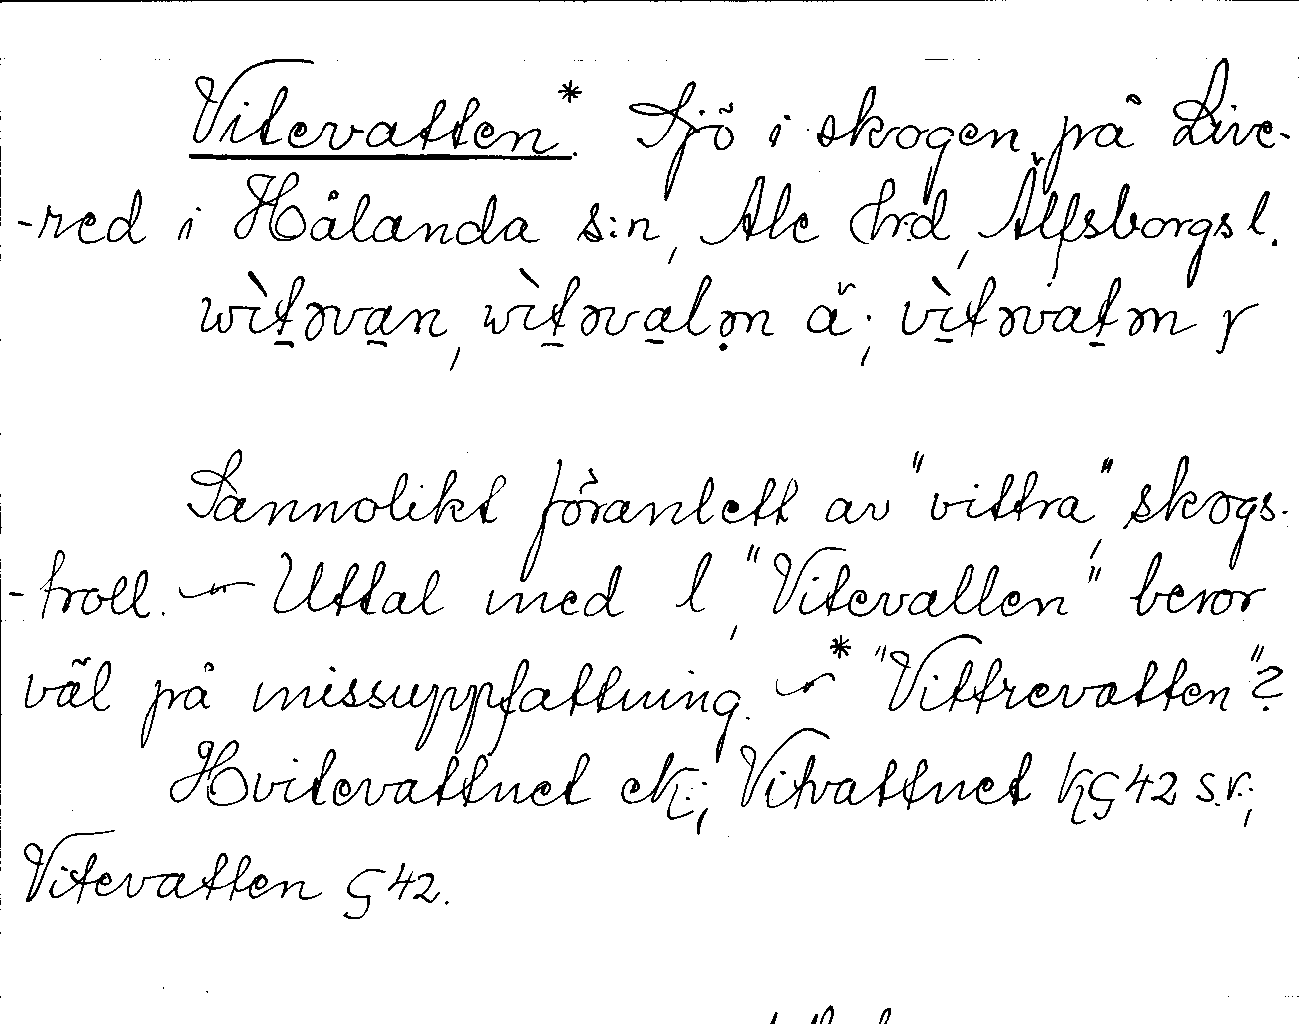 Vitevatten.* Sjö i skogen på Live-
-red i Hålanda s:n, Ale hrd, Älfsborgs l.
wìt̠əva̠n, wìt̠əva̠lə̣n ä; vì̠təvat̠ən γ
Sannolikt föranlett av "vittra", skogs-
-troll. ~ Uttal med l, "Vitevallen" beror
väl på missuppfattning. ~ * "Vittrevatten"?
Hvitevattnet ek.; Vitvattnet kG 42 s.v.;
Vitevatten G 42.